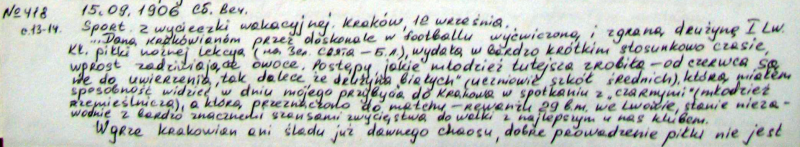 №418 15.09.1906 Сб. Веч.
с.13-14. Sport. z wycieczki wakacyjnej. Kraków, 12 września.
„Dana krakowianom przez doskonale w footballu wyćwiczoną i zgraną drużynę I Lw.
Kl. piłki nożnej lekcya (na 3ег. – Б.Л), wydała w bardzo krótkim stosunkowo czasie,
wprost zadziwiające owoce. Postępy jakie młodzież tutejsza zrobiła – od czerwca są
nie do uwierzenia, tak dalece że drużyna białych" (uczniowie szkół średnich), którą miałem
sposobność widzieć w dniu mojego przybycia do Krakowa w spotkaniu z „czarnymi" (młodzież
rzemieślnicza), a którą przeznaczono do matchu – rewanżu 29 b.m. we Lwowie, stanie nieza-
wodnie z bardzo znacznemi szansami zwycięstwa do walki z najlepszym u nas klubem.
W grze krakowian ani śladu już dawnego chaosu, dobre prowadzenie piłki nie jest